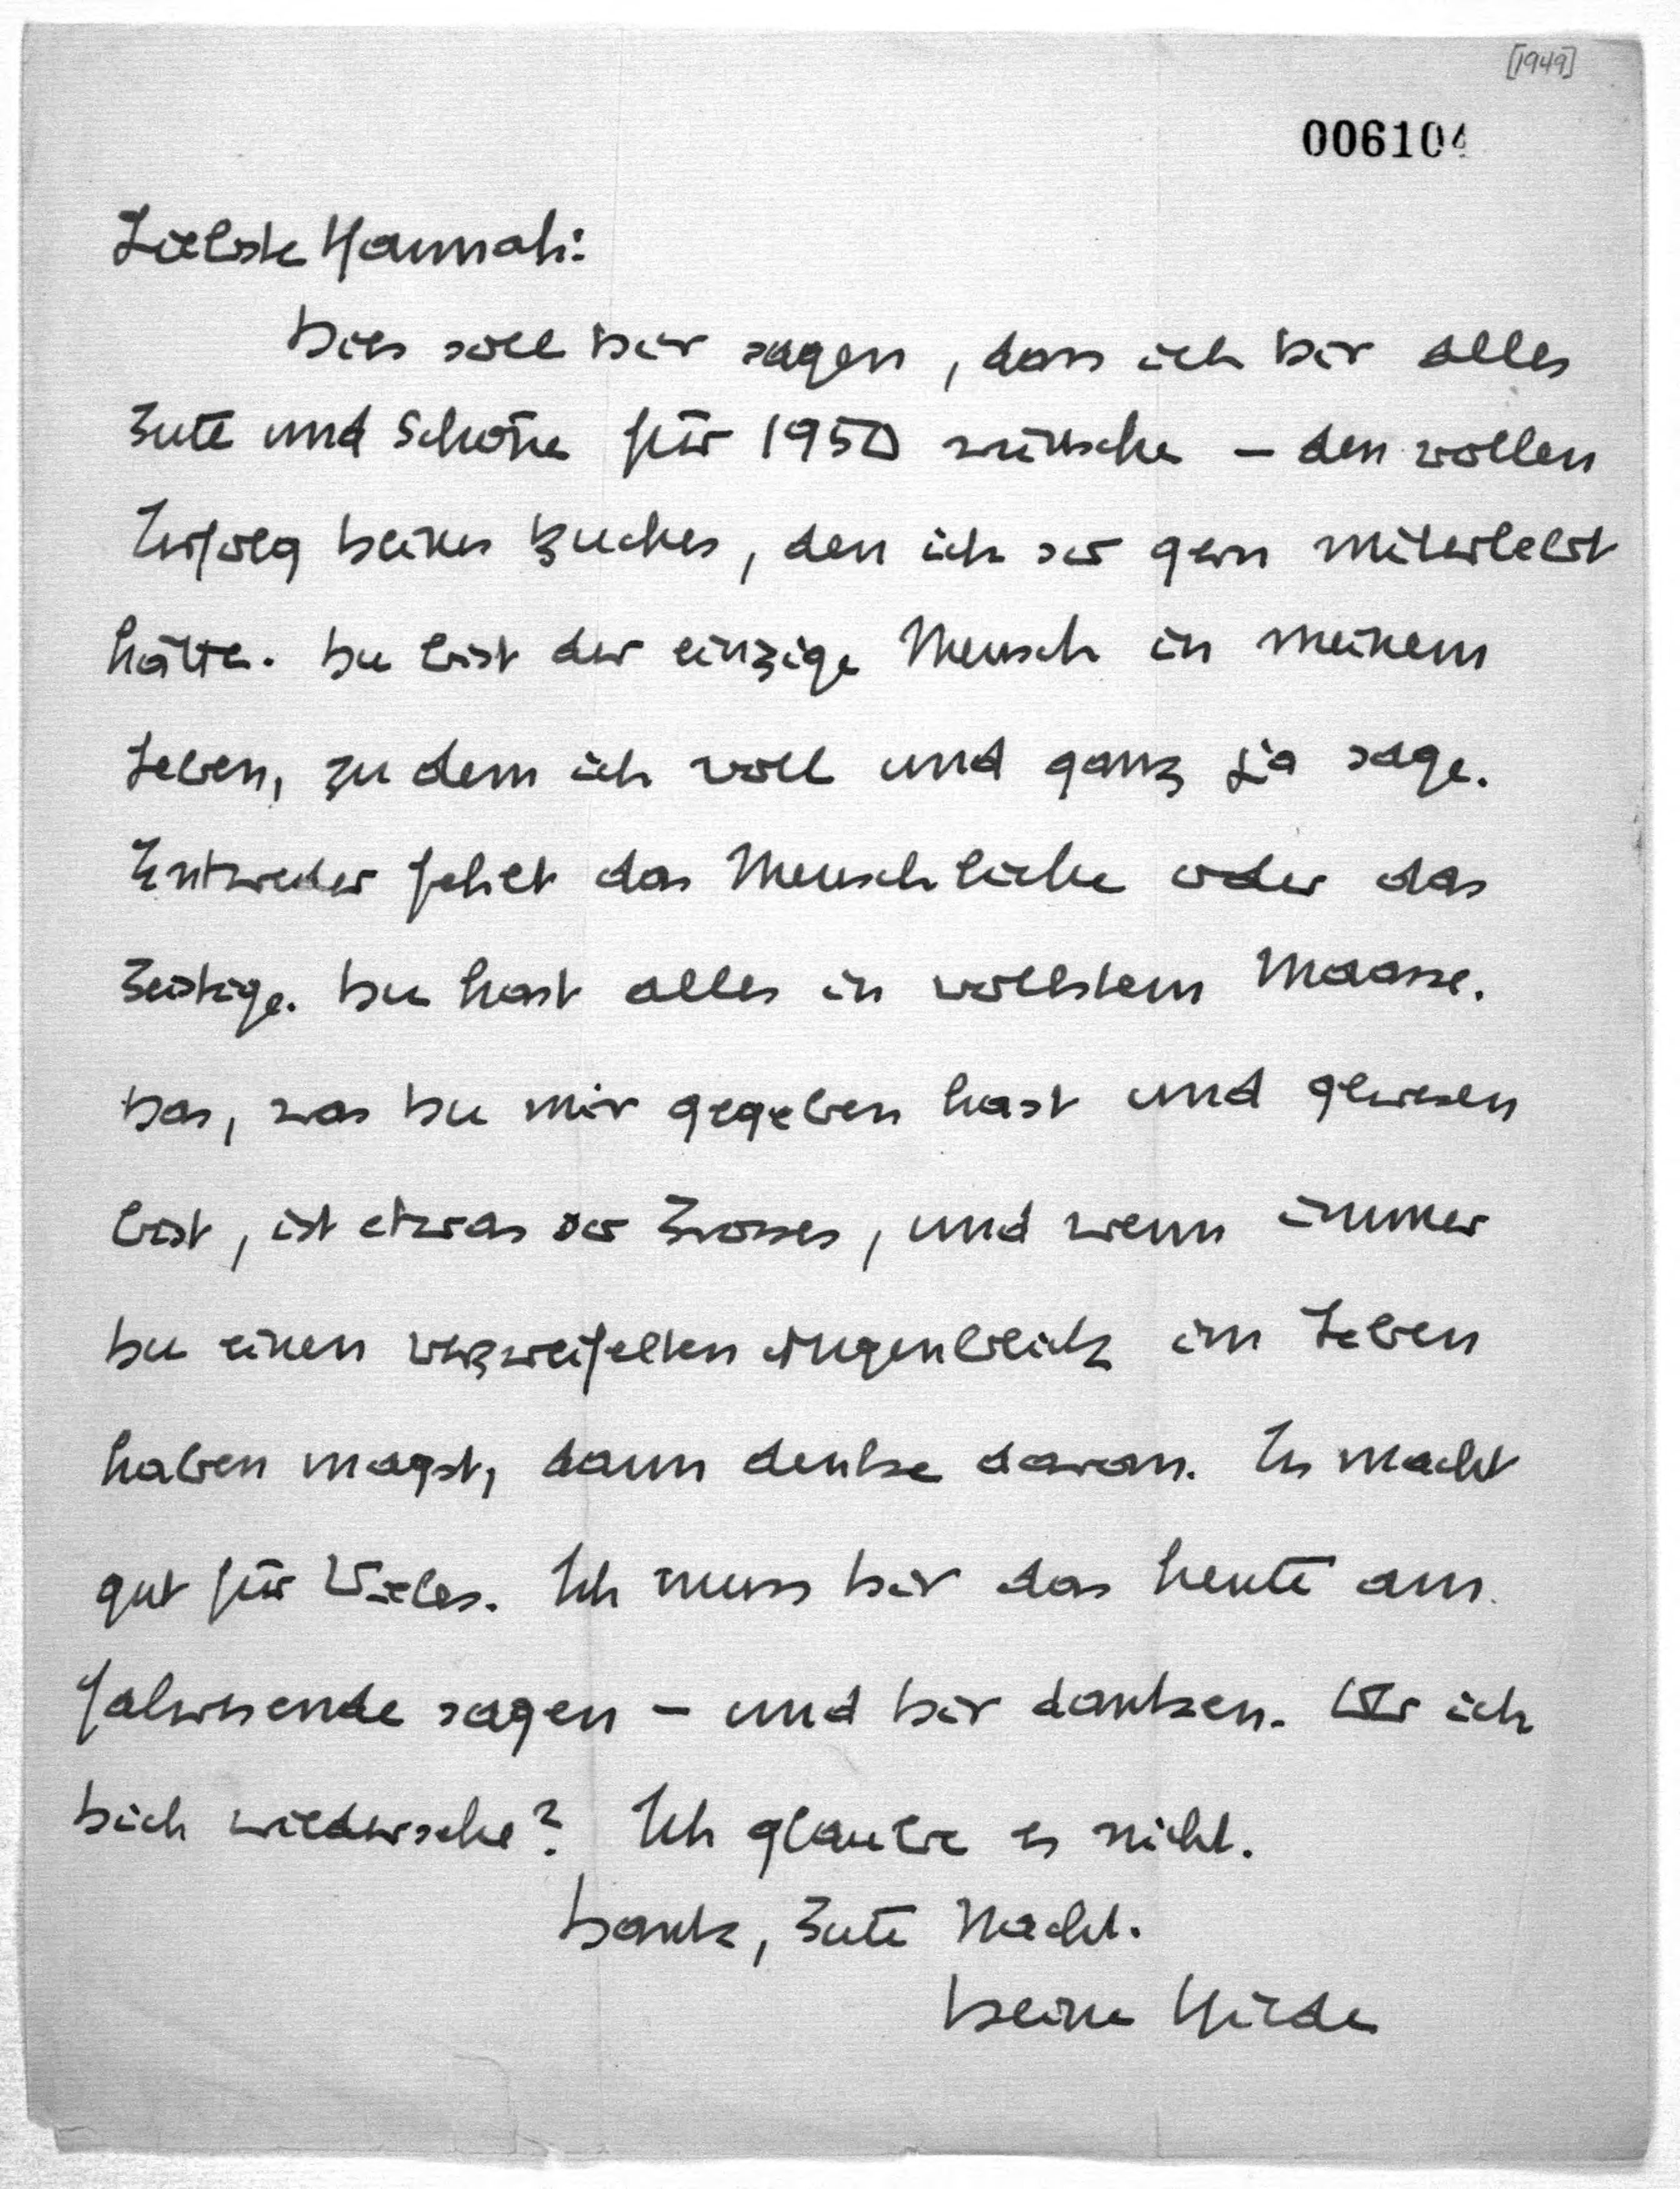 [1949]
006104
Liebste Hannah:
Dies soll Dir sagen, dass ich Dir alles
Gute und Schöne für 1950 wünsche – den vollen
Erfolg Deines Buches, den ich so gern miterlebt
hätte. Du bist der einzige Mensch in meinem
Leben, zu dem ich voll und ganz Ja sage.
Entweder fehlt das Menschliche oder das
Geistige. Du hast alles in vollstem Maasse.
Das, was Du mir gegeben hast und gewesen
bist, ist etwas so Grosses, und wenn immer
Du einen verzweifelten Augenblick im Leben
haben magst, dann denke daran. Es macht
gut für Vieles. Ich muss Dir das heute am
Jahresende sagen – und Dir danken. Ob ich
Dich wiedersehe? Ich glaube es nicht.
Dank, Gute Nacht.
Deine Hilde